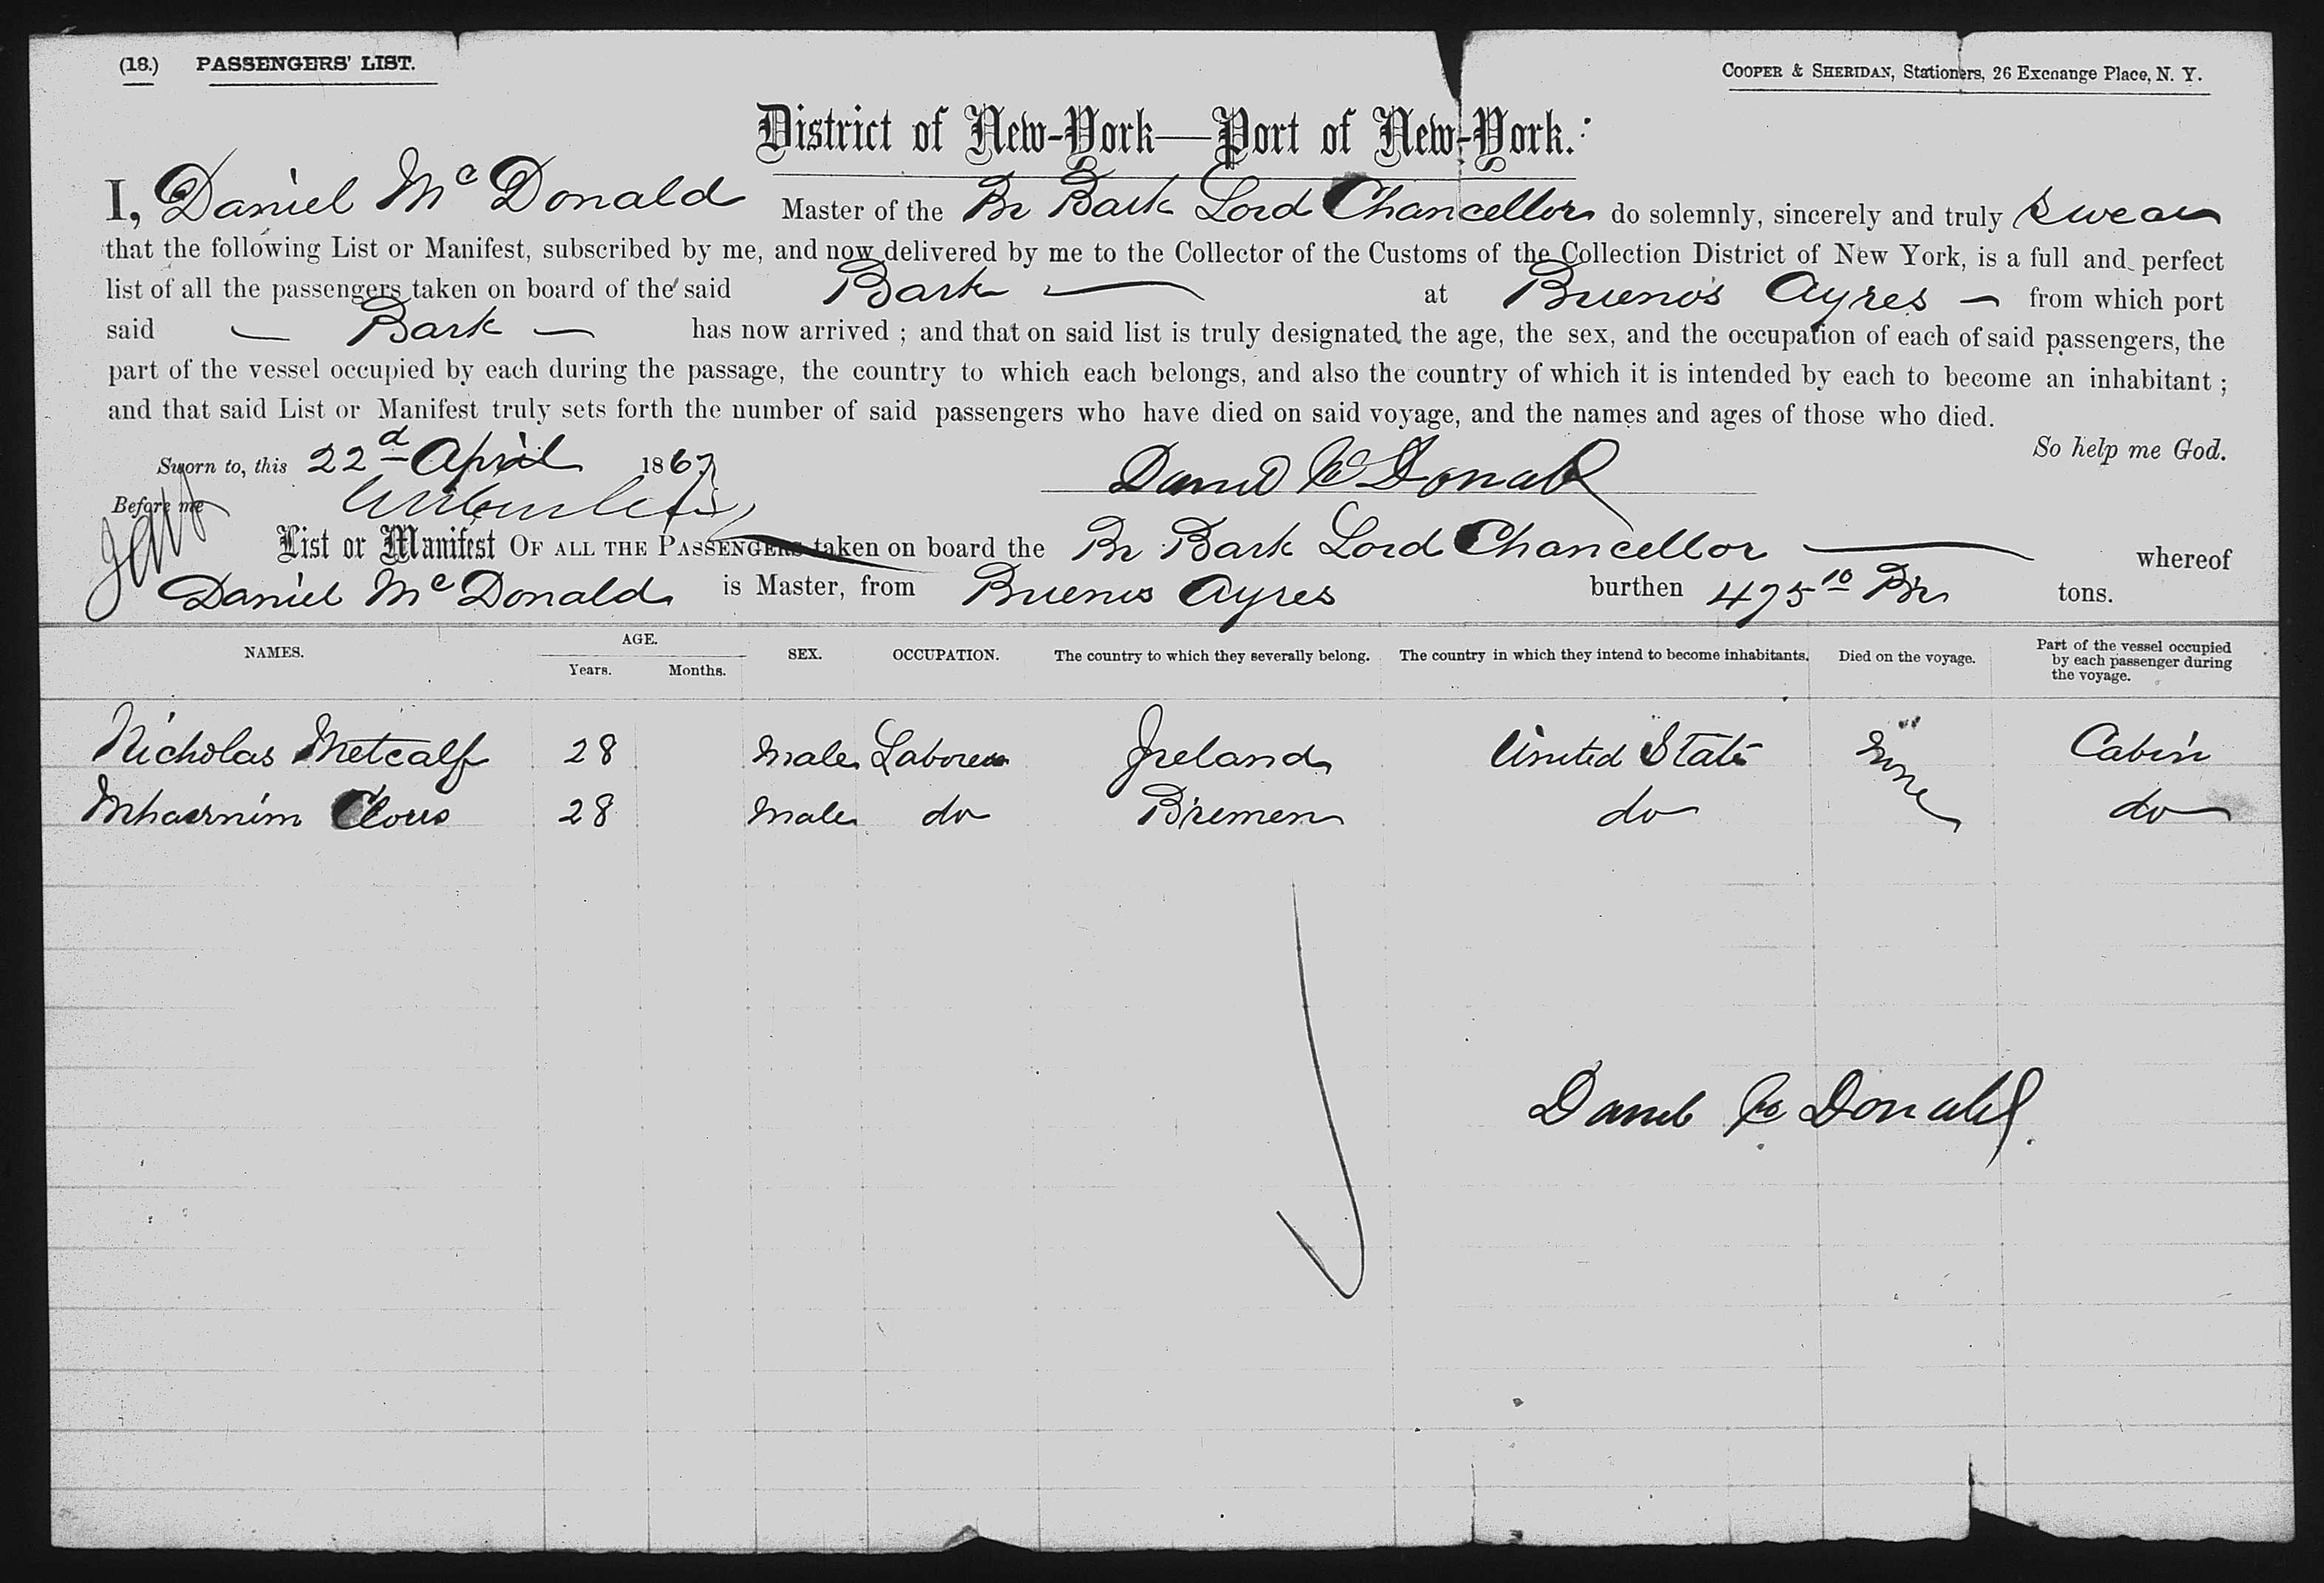 (18.) PASSENGERS' LIST.
COOPER & SHERIDAN, Stationers, 26 Excnange Place, N. Y.
District of New-York—Port of New-York.
I, Daniel McDonald Master of the Br Bark Lord Chancellor do solemnly, sincerely and truly swear
that the following List or Manifest, subscribed by me, and now delivered by me to the Collector of the Customs of the Collection District of New York, is a full and perfect
list of all the passengers taken on board of the said Bark at Buenos Ayres from which port
said Bark has now arrived ; and that on said list is truly designated the age, the sex, and the occupation of each of said passengers, the
part of the vessel occupied by each during the passage, the country to which each belongs, and also the country of which it is intended by each to become an inhabitant ;
and that said List or Manifest truly sets forth the number of said passengers who have died on said voyage, and the names and ages of those who died.
So help me God.
Sworn to, this 22d April 1867
Daniel McDonald
Before me
List or Manifest OF ALL THE PASSENGERS taken on board the Br Bark Lord Chancellor whereof
Daniel McDonald is Master, from Buenos Ayres burthen 475 10 Br tons.
NAMES. AGE. Years. Months. SEX. OCCUPATION. The country to which they severally belong. The country in which they intend to become inhabitants. Died on the voyage. Part of the vessel occupied by each passenger during the voyage.
Nicholas Metcalf 28 Male Laborer Ireland United States None Cabin
28 Male do Bremen do do
Daniel McDonald